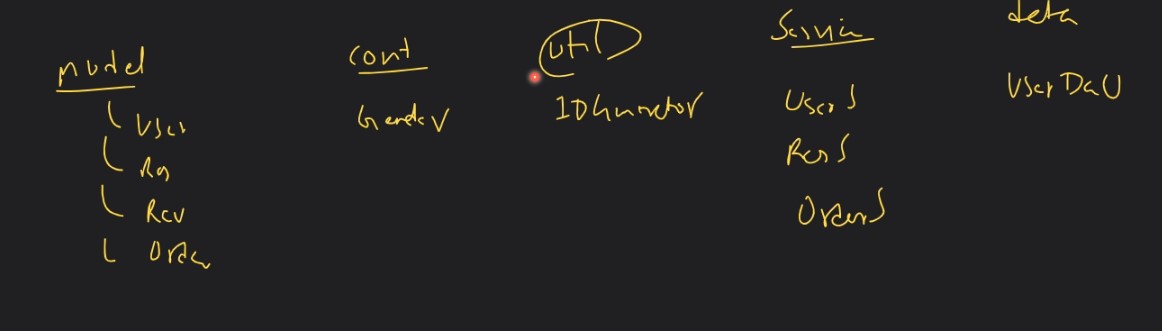 model
User
Res
Rev
Order
cont
Gender
util
IDGenerator
Service
UserS
ResS
OrderS
data
UserDaO